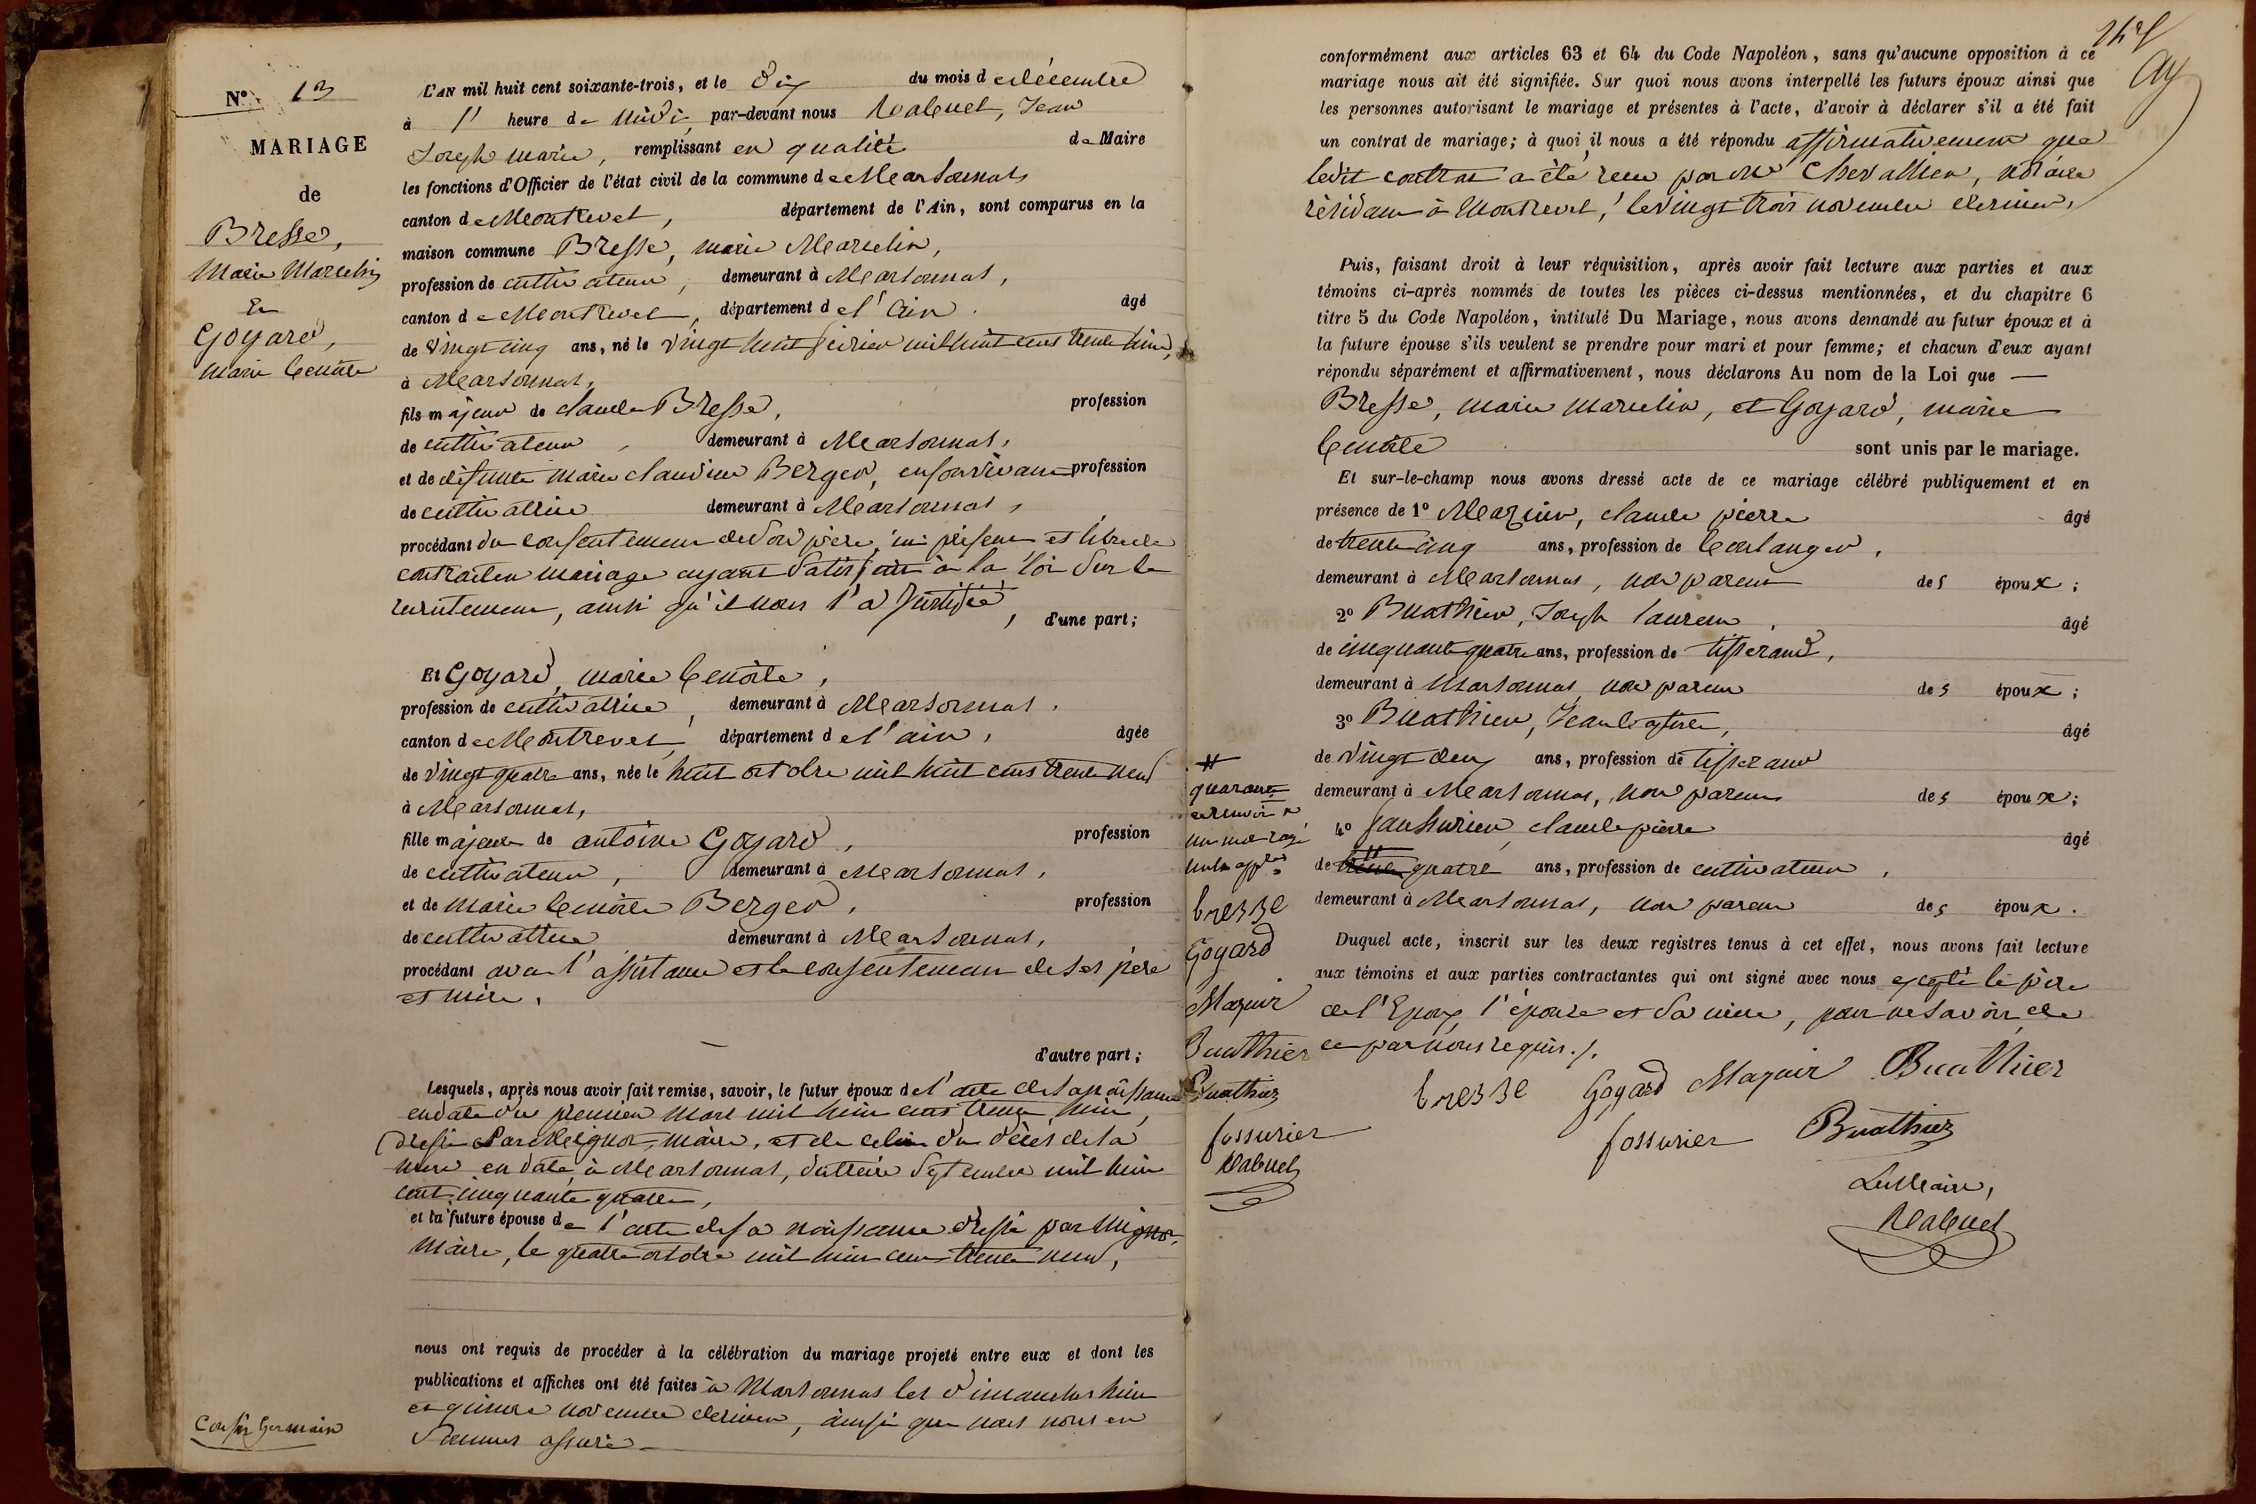 N° 13
MARIAGE
de
Bresse,
Marie Marcelin
Et
Goyard,
Marie benoite
L'AN mil huit cent soixante-trois, et le dix du mois de décembre
à 1' heure de midi, par-devant nous Nabuet, Jean
Joseph marie, remplissant en qualité de Maire
les fonctions d'Officier de l'état civil de la commune de Marsonnas
canton de Montrevel, département de l'Ain, sont comparus en la
maison commune Bresse, marie Marcelin,
profession de cultivateur, demeurant à Marsonnas,
canton de Montrevel, département de l'Ain. âgé
de vingt cinq ans, né le vingt huit février mil huit cent trente huit,
à Marsonnas,
fils majeur de claude Bresse, profession
de cultivateur, demeurant à Marsonnas,
et de défunte marie claudine Berger, en son vivant profession
de cultivatrice demeurant à Marsonnas,
procédant du consentement de son père, ici présent et libre de
contracter mariage ayant satisfait à la loi sur le
recrutement, ainsi qu'il nous l'a justifié, d'une part;
Et Goyard, marie benoite,
profession de cultivatrice, demeurant à Marsonnas.
canton de Montrevel, département de l'ain, âgée
de vingt quatre ans, née le huit octobre mil huit cent trente neuf
à Marsonnas,
fille majeure de antoine Goyard, profession
de cultivateur, demeurant à Marsonnas,
et de marie benoite Berger, profession
de cultivatrice demeurant à Marsonnas,
procédant avec l'assistance et le consentement de ses père
et mère.
d'autre part;
Lesquels, après nous avoir fait remise, savoir, le futur époux de l'acte de sa naissance
en date du premier mars mil huit cent trente huit,
dressé par Mignot, maire, et de celui du décès de sa
mère en date, à Marsonnas, du treize septembre mil huit
cent cinquante quatre,
et la future épouse de l'acte de sa naissance dressé par Mignot,
Maire, le quatre octobre mil huit cent trente neuf,
nous ont requis de procéder à la célébration du mariage projeté entre eux et dont les
publications et affiches ont été faites à Marsonnas les dimanches huit
et quinze novembre dernier, ainsi que nous nous en
sommes assuré
Cousin Germain
conformément aux articles 63 et 64 du Code Napoléon, sans qu'aucune opposition à ce
mariage nous ait été signifiée. Sur quoi nous avons interpellé les futurs époux ainsi que
les personnes autorisant le mariage et présentes à l'acte, d'avoir à déclarer s'il a été fait
un contrat de mariage; à quoi il nous a été répondu affirmativement que
ledit contrat a été reçu par Me Chevallier, notaire
résidant à Montrevel, le vingt trois novembre dernier,
Puis, faisant droit à leur réquisition, après avoir fait lecture aux parties et aux
témoins ci-après nommés de toutes les pièces ci-dessus mentionnées, et du chapitre 6
titre 5 du Code Napoléon, intitulé Du Mariage, nous avons demandé au futur époux et à
la future épouse s'ils veulent se prendre pour mari et pour femme; et chacun d'eux ayant
répondu séparément et affirmativement, nous déclarons Au nom de la Loi que —
Bresse, marie marcelin, et Goyard, marie
benoite sont unis par le mariage.
Et sur-le-champ nous avons dressé acte de ce mariage célébré publiquement et en
présence de 1° Mazuir, claude pierre âgé
de trente cinq ans, profession de boulanger,
demeurant à Marsonnas, non parent des époux;
2° Buathier, Joseph laurent, âgé
de cinquante quatre ans, profession de tisserand,
demeurant à Marsonnas, non parent des époux;
3° Buathier, Jean baptiste, âgé
de vingt deux ans, profession de tisserand
demeurant à Marsonnas, non parent des époux;
4° claude pierre âgé
de trente quatre ans, profession de cultivateur,
demeurant à Marsonnas, non parent des époux.
Duquel acte, inscrit sur les deux registres tenus à cet effet, nous avons fait lecture
aux témoins et aux parties contractantes qui ont signé avec nous excepté le père
de l'Epoux, l'épouse et sa mère, pour ne savoir, de
ce par nous requis./.
quarante
un mot rayé
bresse
Goyard
Mazuir
Buathier
Buathier
fossurier
Nabuet
bresse Goyard Mazuir Buathier
fossurier Buathier
Le Maire,
Nabuet